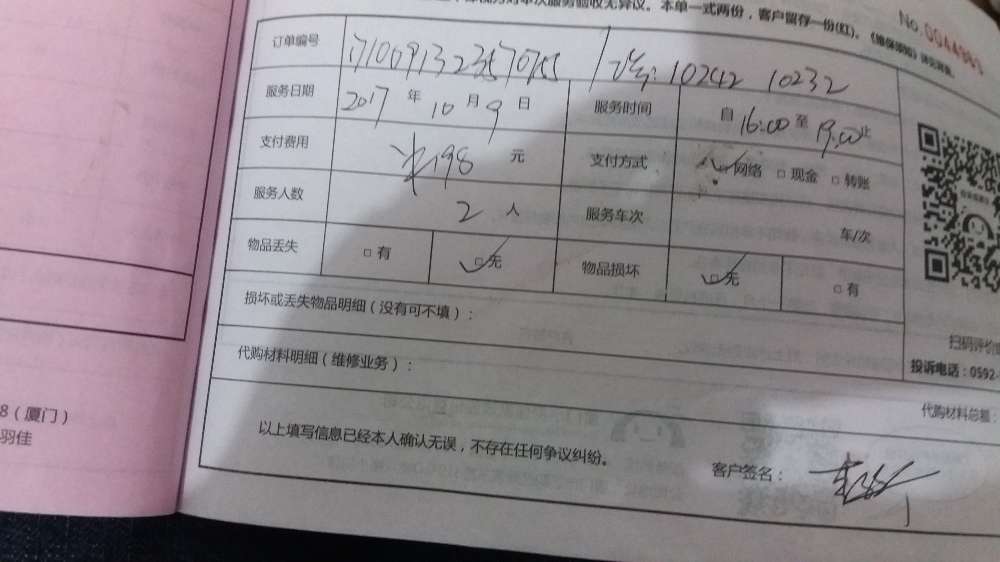 本次服务验收无异议。本单一式两份，客户留存一份(红)。
No.
订单编号
服务日期 2017 年 10 月 9 日 服务时间 自 16:00 至 19:00 止
10242 10232
支付费用 ¥198 元 支付方式 ☑网络 □现金 □转账
服务人数 2 人 服务车次 车/次
物品丢失 □有 ☑无 物品损坏 ☑无 □有
损坏或丢失物品明细（没有可不填）：
扫码评价
投诉电话：0592-
代购材料明细（维修业务）：
代购材料总额：
以上填写信息已经本人确认无误，不存在任何争议纠纷。
客户签名：
8（厦门）
羽佳